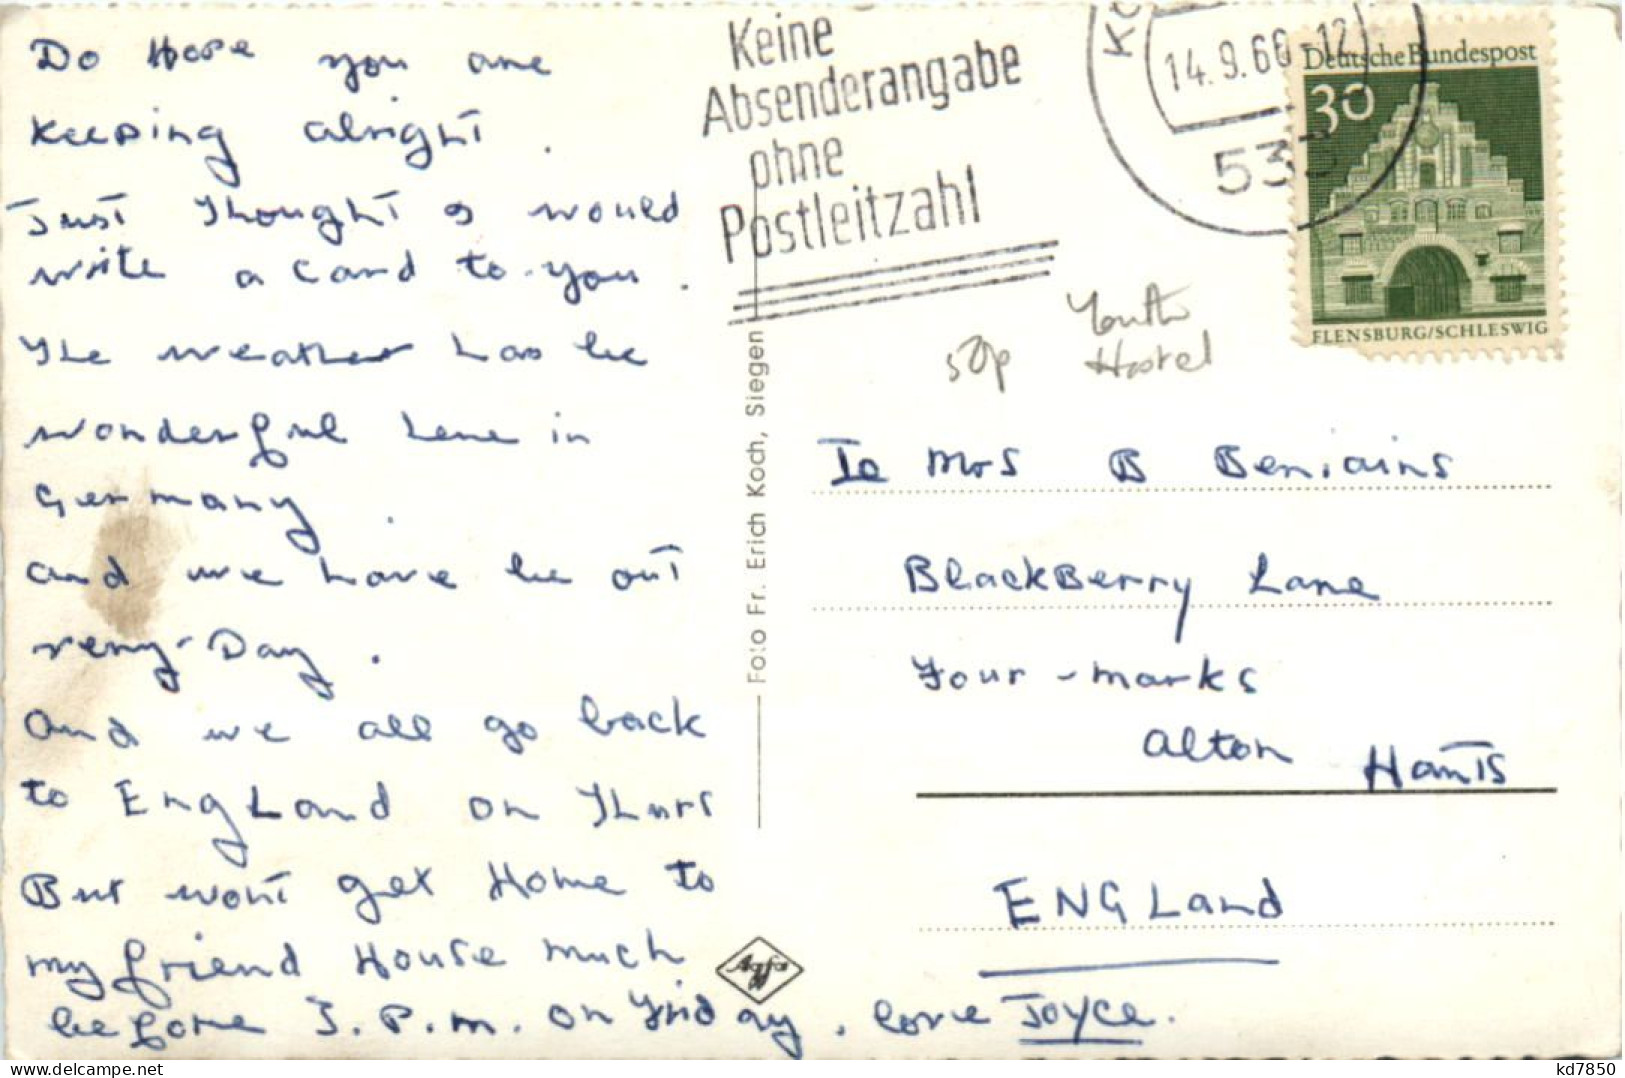 Do Hope you are
Keeping alright .
Just Thought I would
write a Card to you .
The weather has be
wonderful here in
Germany .
and we have be out
very Day .
And we all go back
to England on Thurs
But wont get Home to
my friend House much
before 3. P.m. on Friday . love Joyce.
Keine
Absenderangabe
ohne
Postleitzahl
14.9.66 12
533
Deutsche Bundespost
30
FLENSBURG/SCHLESWIG
50p
Youth
Hostel
Foto Fr. Erich Koch, Siegen
Agfa
To Mrs B
BlackBerry Lane
Four - marks
Alton Hants
ENGLand
kd7850